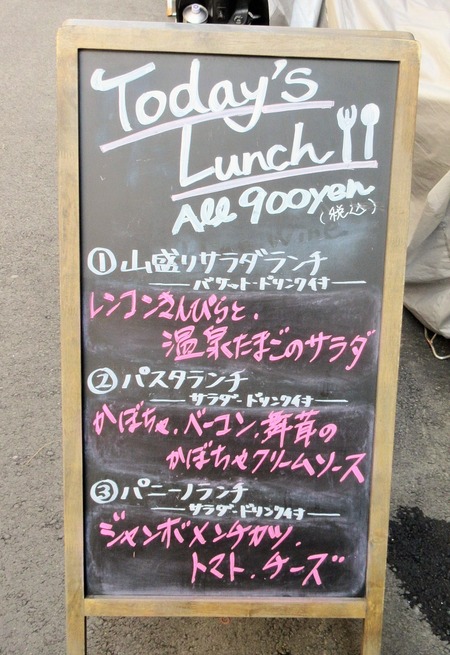 Today's
Lunch
All 900yen
(税込)
①山盛りサラダランチ
バケット・ドリンク付
レンコンきんぴらと、
温泉たまごのサラダ
②パスタランチ
サラダ・ドリンク付
かぼちゃ、ベーコン、舞茸の
かぼちゃクリームソース
③パニーノランチ
サラダ・ドリンク付
ジャンボメンチカツ、
トマト、チーズ